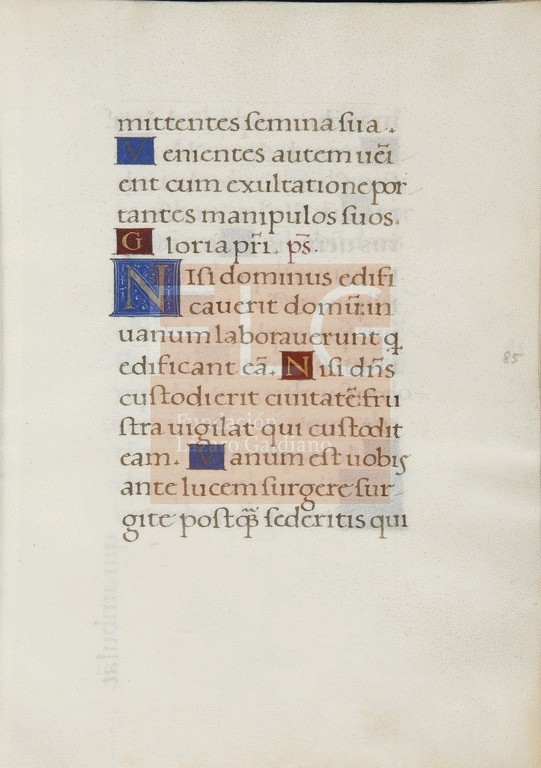 mittentes semina sua.
Venientes autem uēi
ent cum exultatione por
tantes manipulos suos.
Gloria pr̄i. ps̄.
Nisi dominus edifi
cauerit domū: in
uanum laborauerunt q̣
edificant eā. Nisi dn̄s
custodierit ciuitatē: fru
stra uigilat qui custodit
eam. Vanum est uobis
ante lucem surgere sur
gite postq̄ȝ sederitis qui
85
FLG
Fundación
Lázaro Galdiano